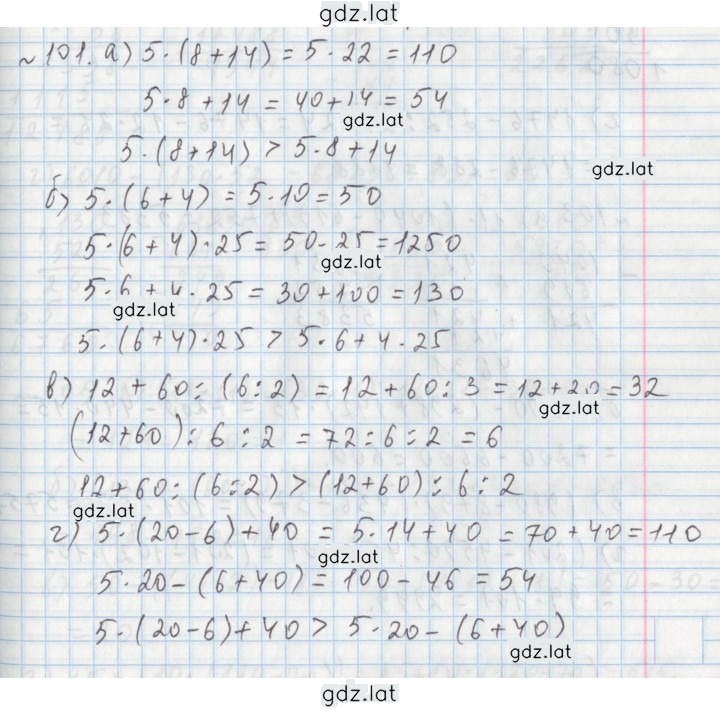 gdz.lat
№101. а) 5·(8+14) = 5·22 = 110
5·8+14 = 40+14 = 54
gdz.lat
5·(8+14) > 5·8+14
gdz.lat
б) 5·(6+4) = 5·10 = 50
5·(6+4)·25 = 50·25 = 1250
gdz.lat
5·6+4·25 = 30+100 = 130
gdz.lat
5·(6+4)·25 > 5·6+4·25
в) 12+60:(6:2) = 12+60:3 = 12+20 = 32
gdz.lat
(12+60):6:2 = 72:6:2 = 6
12+60:(6:2) > (12+60):6:2
gdz.lat
г) 5·(20-6)+40 = 5·14+40 = 70+40 = 110
gdz.lat
5·20-(6+40) = 100-46 = 54
5·(20-6)+40 > 5·20-(6+40)
gdz.lat
gdz.lat